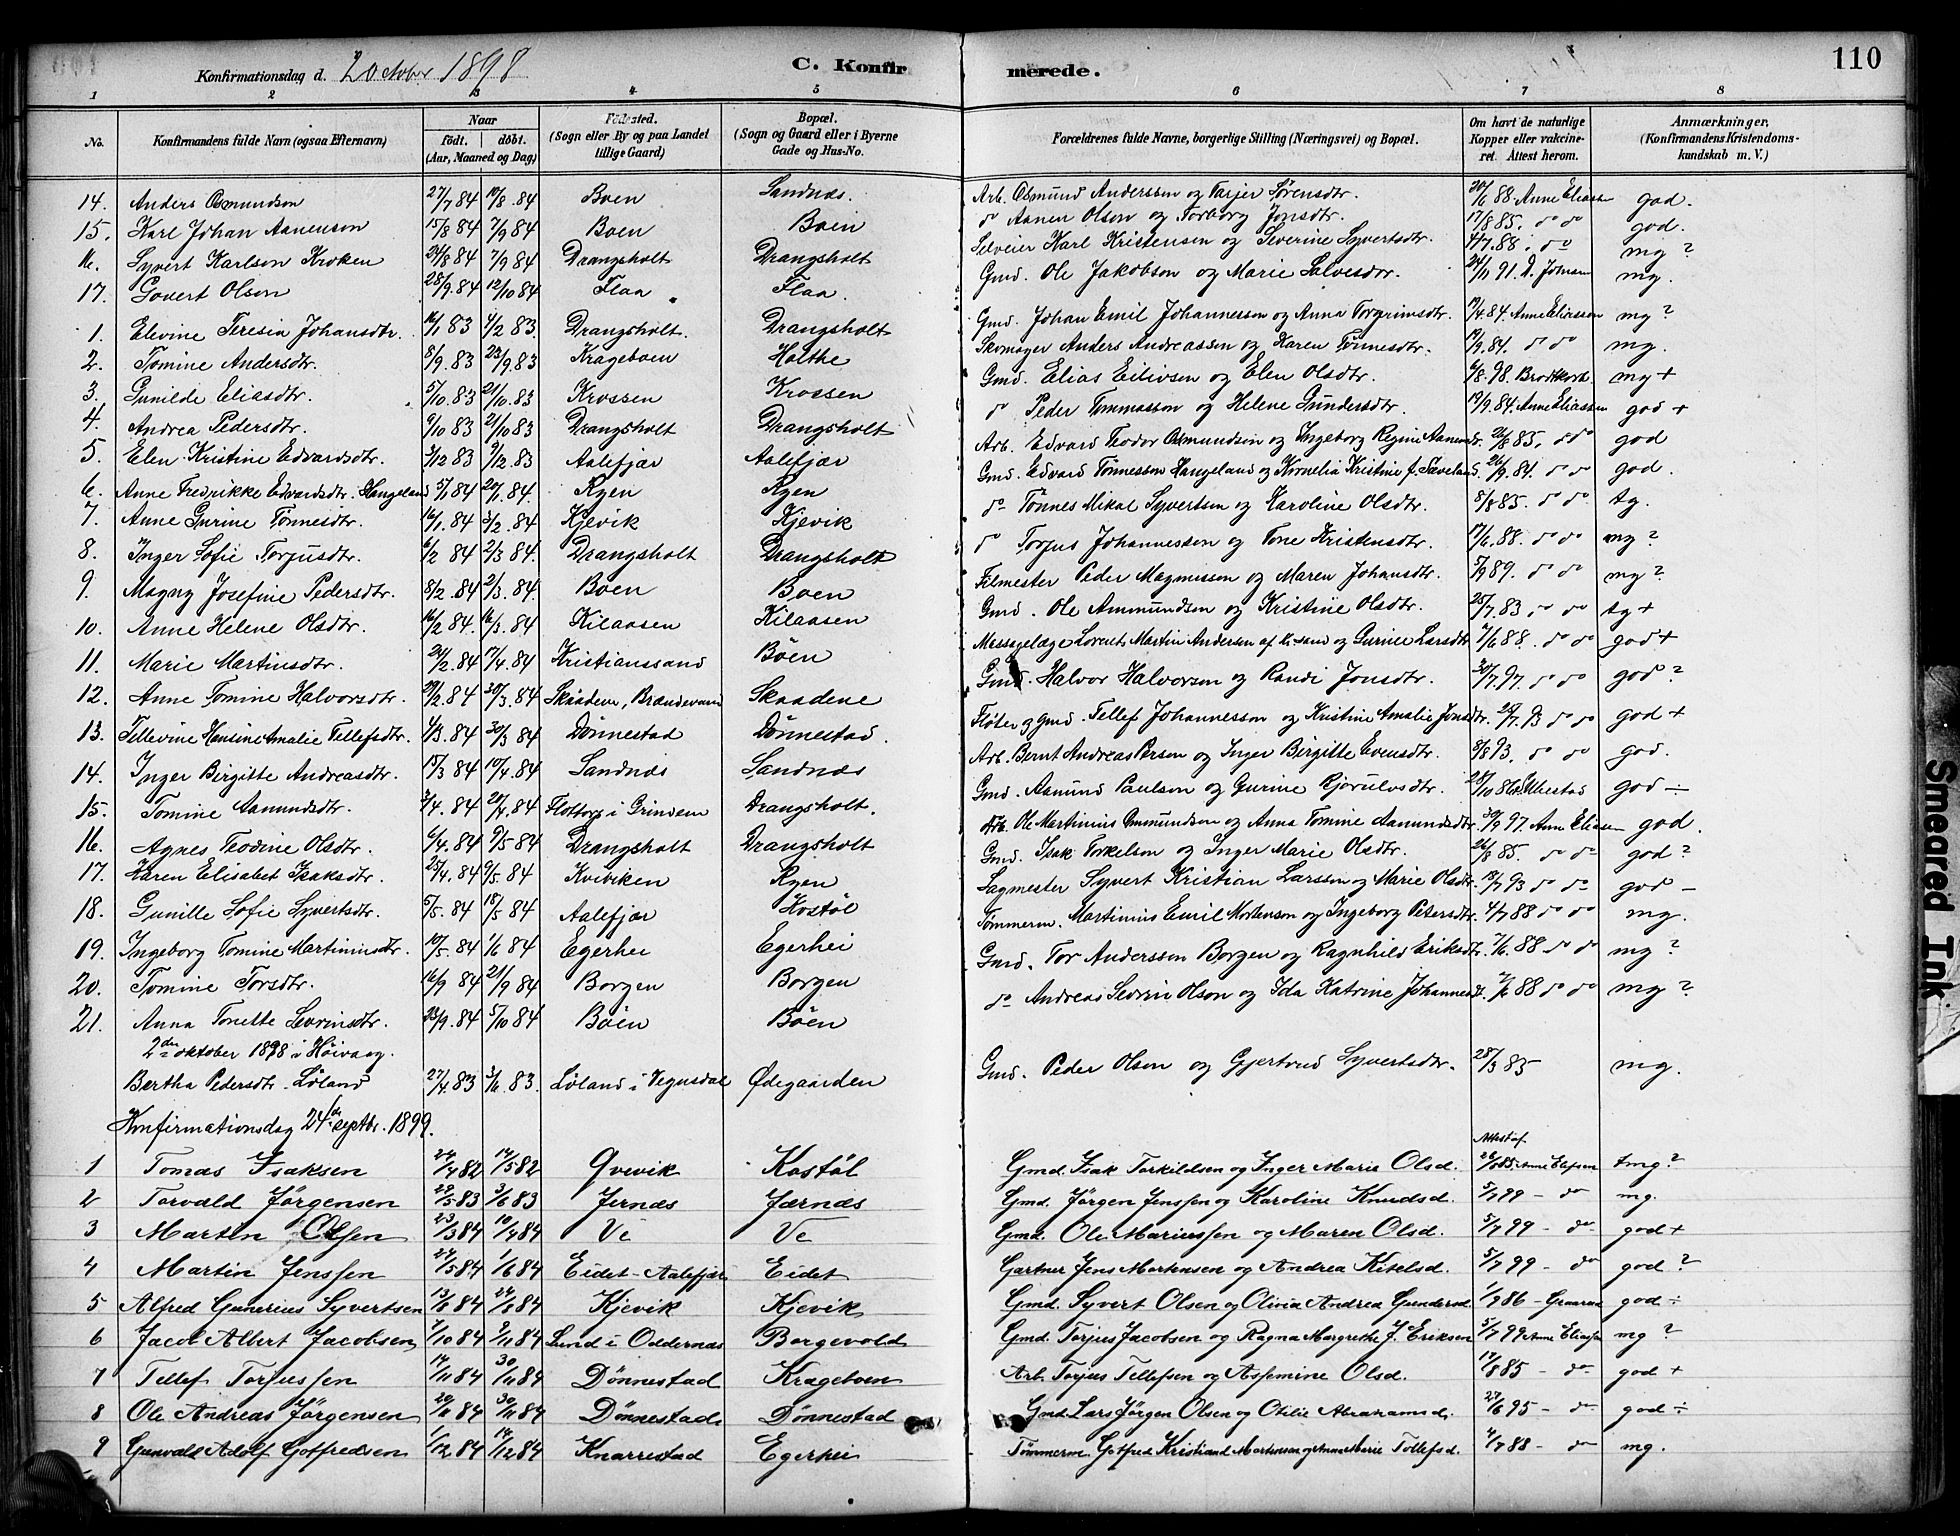 Konfirmationsdag d. 2 October 1898 C. Konfirmerede. 110
1 2 3 4 5 6 7 8
No. Konfirmandens fulde Navn (ogsaa Efternavn) Naar født. døbt. (Aar, Maaned og Dag) Fødested. (Sogn eller By og paa Landet tillige Gaard) Bopæl. (Sogn og Gaard eller i Byerne Gade og Hus-No. Forældrenes fulde Navne, borgerlige Stilling (Næringsvei) og Bopæl. Om havt de naturlige Kopper eller vakcineret. Attest herom. Anmærkninger. (Konfirmandens Kristendomskundskab m. V.)
14. Anders Osmundson 27/7 84 10/8. 84 Boen Sandnæs. Arb. Osmund Anderssen og Tarjer Sørensdtr. 20/6 88 Anne Eliassen god.
15. Karl Johan Aanenson 15/8 84 7/9 84 Boen Boen do Aanen Olson og Torborg Jonsdtr. 17/8 85. do do god.
16. Syvert Karlson Kroken 24/8 84 7/9 84 Drangsholt Drangsholt Selveier Karl Kristensen og Severine Syvertsdtr. 4/7. 88. do mg ?
17. Govert Olson 28/9. 84 12/10 84 Flaa Flaa. Gmd. Ole Jakobson og Marie Salvesdtr. 24/11 91. mg.
1. Elevine Teresia Johansdtr. 16/1 83 4/2 83. Drangsholt. Drangsholt Gmd. Johan Emil Johannesson og Anna Torgrimsdtr. 19/4. 84. Anne Eliassen mg ?
2. Tomine Andersdtr. 8/9. 83 23/9. 83 Krageboen Holthe Skomager Anders Andreassen og Karen Tønnesdtr. 19/9. 84. do do mg.
3. Gunilde Eliasdtr. 5/10. 83 21/10. 83 Krossen Krossen Gmd. Elias Eilivsen og Elen Olsdtr. 6/8. 98. mg +
4. Andrea Pedersdtr. 9/10 83 21/10 83 Drangsholt Drangsholt do Peder Tommasson og Helene Gundersdtr. 19/9. 84 Anne Eliassen god +
5. Elen Kristine Edvardsdtr. 3/12 83 9/12. 83 Aalefjær Aalefjær Arb. Edvard Teodor Osmundson og Ingeborg Regine Aanensdtr. 26/8 85. do god
6. Anne Fredrikke Edvardsdtr. Hangeland 5/1 84 20/1. 84. Ryen Ryen Gmd. Edvard Tønnesson Hangeland og Kornelia Kristine f. 26/9. 84. do do god.
7. Anne Gurine Tønnesdtr. 16/1. 84 3/2. 84 Kjevik Kjevik do Tønnes Mikal Syvertsen og Karoline Olsdtr. 8/8 85. do do. tg.
8. Inger Sofie Torjusdtr. 6/2 84 2/3 84. Drangsholt Drangsholt do Torjus Johannesson og Tone Kristensdtr. 17/6. 88. do do mg ?
9. Magny Josefine Pedersdtr. 8/2. 84 2/3. 84 Boen Boen Peder Magnusson og Maren Johansdtr. 5/9 89. do do mg ?
10. Anne Helene Olsdtr. 16/2 84. 16/3. 84 Kilaasen Kilaasen Gmd. Ole Ammundson og Kristine Olsdtr. 25/7. 83 do do tg +
11. Marie Martinsdtr. 20/2. 84 17/4. 84 Kristianssand Boen Lorents Martin Andersen af og Gurine Larsdtr. 7/6 88. do do god +
12. Anne Tomine Halvorsdtr. 29/2. 84 30/3. 84 Skaadene, Brændevand Skaadene Gmd. Halvor Halvorsen og Randi Jonsdtr. 30/7. 97. do do. god ?
13. Tellevine Hansine Amalie Tellefsdtr. 4/3. 84 30/3 84 Dønnestad Dønnestad. Fløter og Gmd. Tellef Johannesson og Kristine Amalie Jonsdtr. 29/7. 93 do do god +
14. Inger Birgitte Andreasdtr. 15/3 84 10/4. 84 Sandnæs Sandnæs Arb. Bernt Andreas Persen og Inger Birgitte Evensdtr. 8/8 93. do do god.
15. Tomine Aamundsdtr. 3/4. 84 20/4. 84 Flottorp i Grindem Drangsholt. Gmd. Aamund Paulson og Gurine Gjerulvsdtr. 28/10 86. god ÷
16. Agnes Teodine Olsdtr. 6/4. 84 9/5 84 Drangsholt Drangsholt Arb. Ole Martinius Ommundson og Anna Tomine Aamundsdtr. 30/9 97. Anne Eliassen god.
17. Karen Elisabet Isaksdtr. 25/4. 84 9/5. 84 Kviviken Ryen Gmd. Isak Torkelson og Inger Marie Olsdtr. 26/8 85. do do god ?
18. Gunille Sofie Syvertsdtr. 5/5. 84 18/5 84 Aalefjær Kostøl Sagmester Syvert Kristian Larsson og Marie Olsdtr. 13/7 93 do do god –
19. Ingeborg Tomine Martiniusdtr. 10/5. 84 1/6 84 Egerhei Egerhei Tømmerm. Martinius Emil Mortenson og Ingeborg Petersdtr. 4/7 88 do do mg.
20. Tomine Torsdtr. 16/9 84 21/9 84 Borgen Borgen Gmd. Tor Andersson Borgen og Ragnhild Eriksdtr. 7/6. 88 do do mg ?
21. Anna Tonette Sevrinsdtr. 23/9. 84 5/10 84 Boen Boen do Andreas Sevrin Olson og Ida Katrine Johannesdtr. 7/6 88 do do mg ?
2den oktober 1898 i Høivaag.
Bertha Pedersdtr. Løland 27/4. 83 3/6. 83. Løland i Vegusdal Ødegaarden Gmd. Peder Olson og Gjertrud Syvertsdtr. 28/3 85 mg.
Konfirmationsdag 24de septbr. 1899.
Attest af
1 Tomas Isaksen 24/4 82 14/5 82 Qvevik Kostøl Gmd. Isak Torkildsen og Inger Marie Olsd. 26/8 85 Anne Eliasen tmg ?
2 Torvald Jørgensen 29/5 83 3/6 83 Jernæs Jærnæs Gmd. Jørgen Jenssen og Karoline Knudsd. 5/7 99 – do mg.
3 Martin Olsen 23/3 84 10/4 84 Ve Ve Gmd. Ole Mariussen og Maren Olsd. 5/7 99 – do god +
4 Martin Jenssen 24/5 84 1/6 84 Eidet – Aalefjær Eidet Gartner Jens Mortensen og Andrea Kitelsd. 5/7 99 – do god ?
5 Alfred Gunerius Syvertsen 13/8 84 24/8 84 Kjevik Kjevik Gmd. Syvert Olsen og Olivia Andrea Gundersd. 1/9 86 – god ÷
6 Jacob Albert Jacobsen 7/10 84 9/11 84 Lund i Oddernæs Borgevold Gmd. Torjus Jacobsen og Ragna Margrethe J. Eriksen 5/7 99 Anne Eliassen mg ?
7 Tellef Torjussen 14/11 84 30/11 84 Dønnestad Krageboen Arb. Torjus Tellefsen og Assemine Olsd. 17/8 85 – do god +
8 Ole Andreas Jørgensen 20/11 84 30/11 84 Dønnestad Dønnestad Gmd. Lars Jørgen Olsen og Otilie Abrahamsd. 27/6 95 – do god ÷
9 Gunvald Adolf Gotfredsen 1/12 84 14/12 84 Knarrestad Egerhei Tømmerm. Gotfred Kristiand Mortensen og Anne Marie Tollefsd. 4/7 88 – do mg.
Smeared Ink